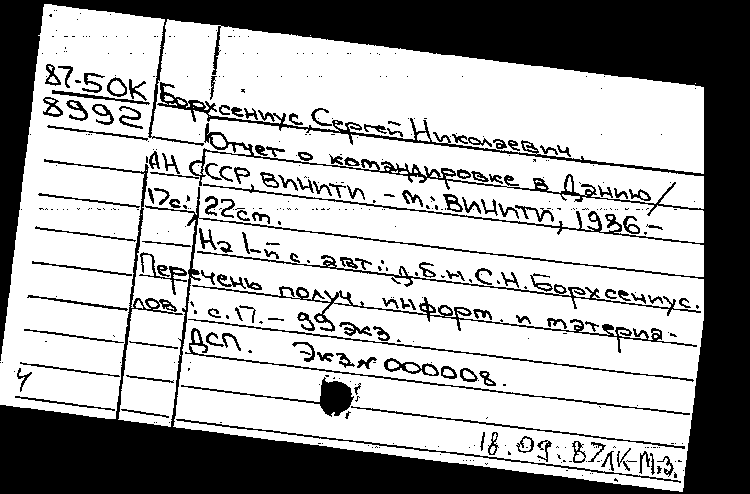 87-5ОК
8992
Борхсениус, Сергей Николаевич.
Отчет о командировке в Данию /
АН СССР, ВИНИТИ. - М.: ВИНИТИ, 1986.-
17с.; 22см.
На 1-й с. авт.: д.б.н. С.Н. Борхсениус.
Перечень получ. информ. и материа-
лов.: с.17. - 99 экз.
ДСП. Экз № 000008.
4
18.09.87 ЛК-М.З.